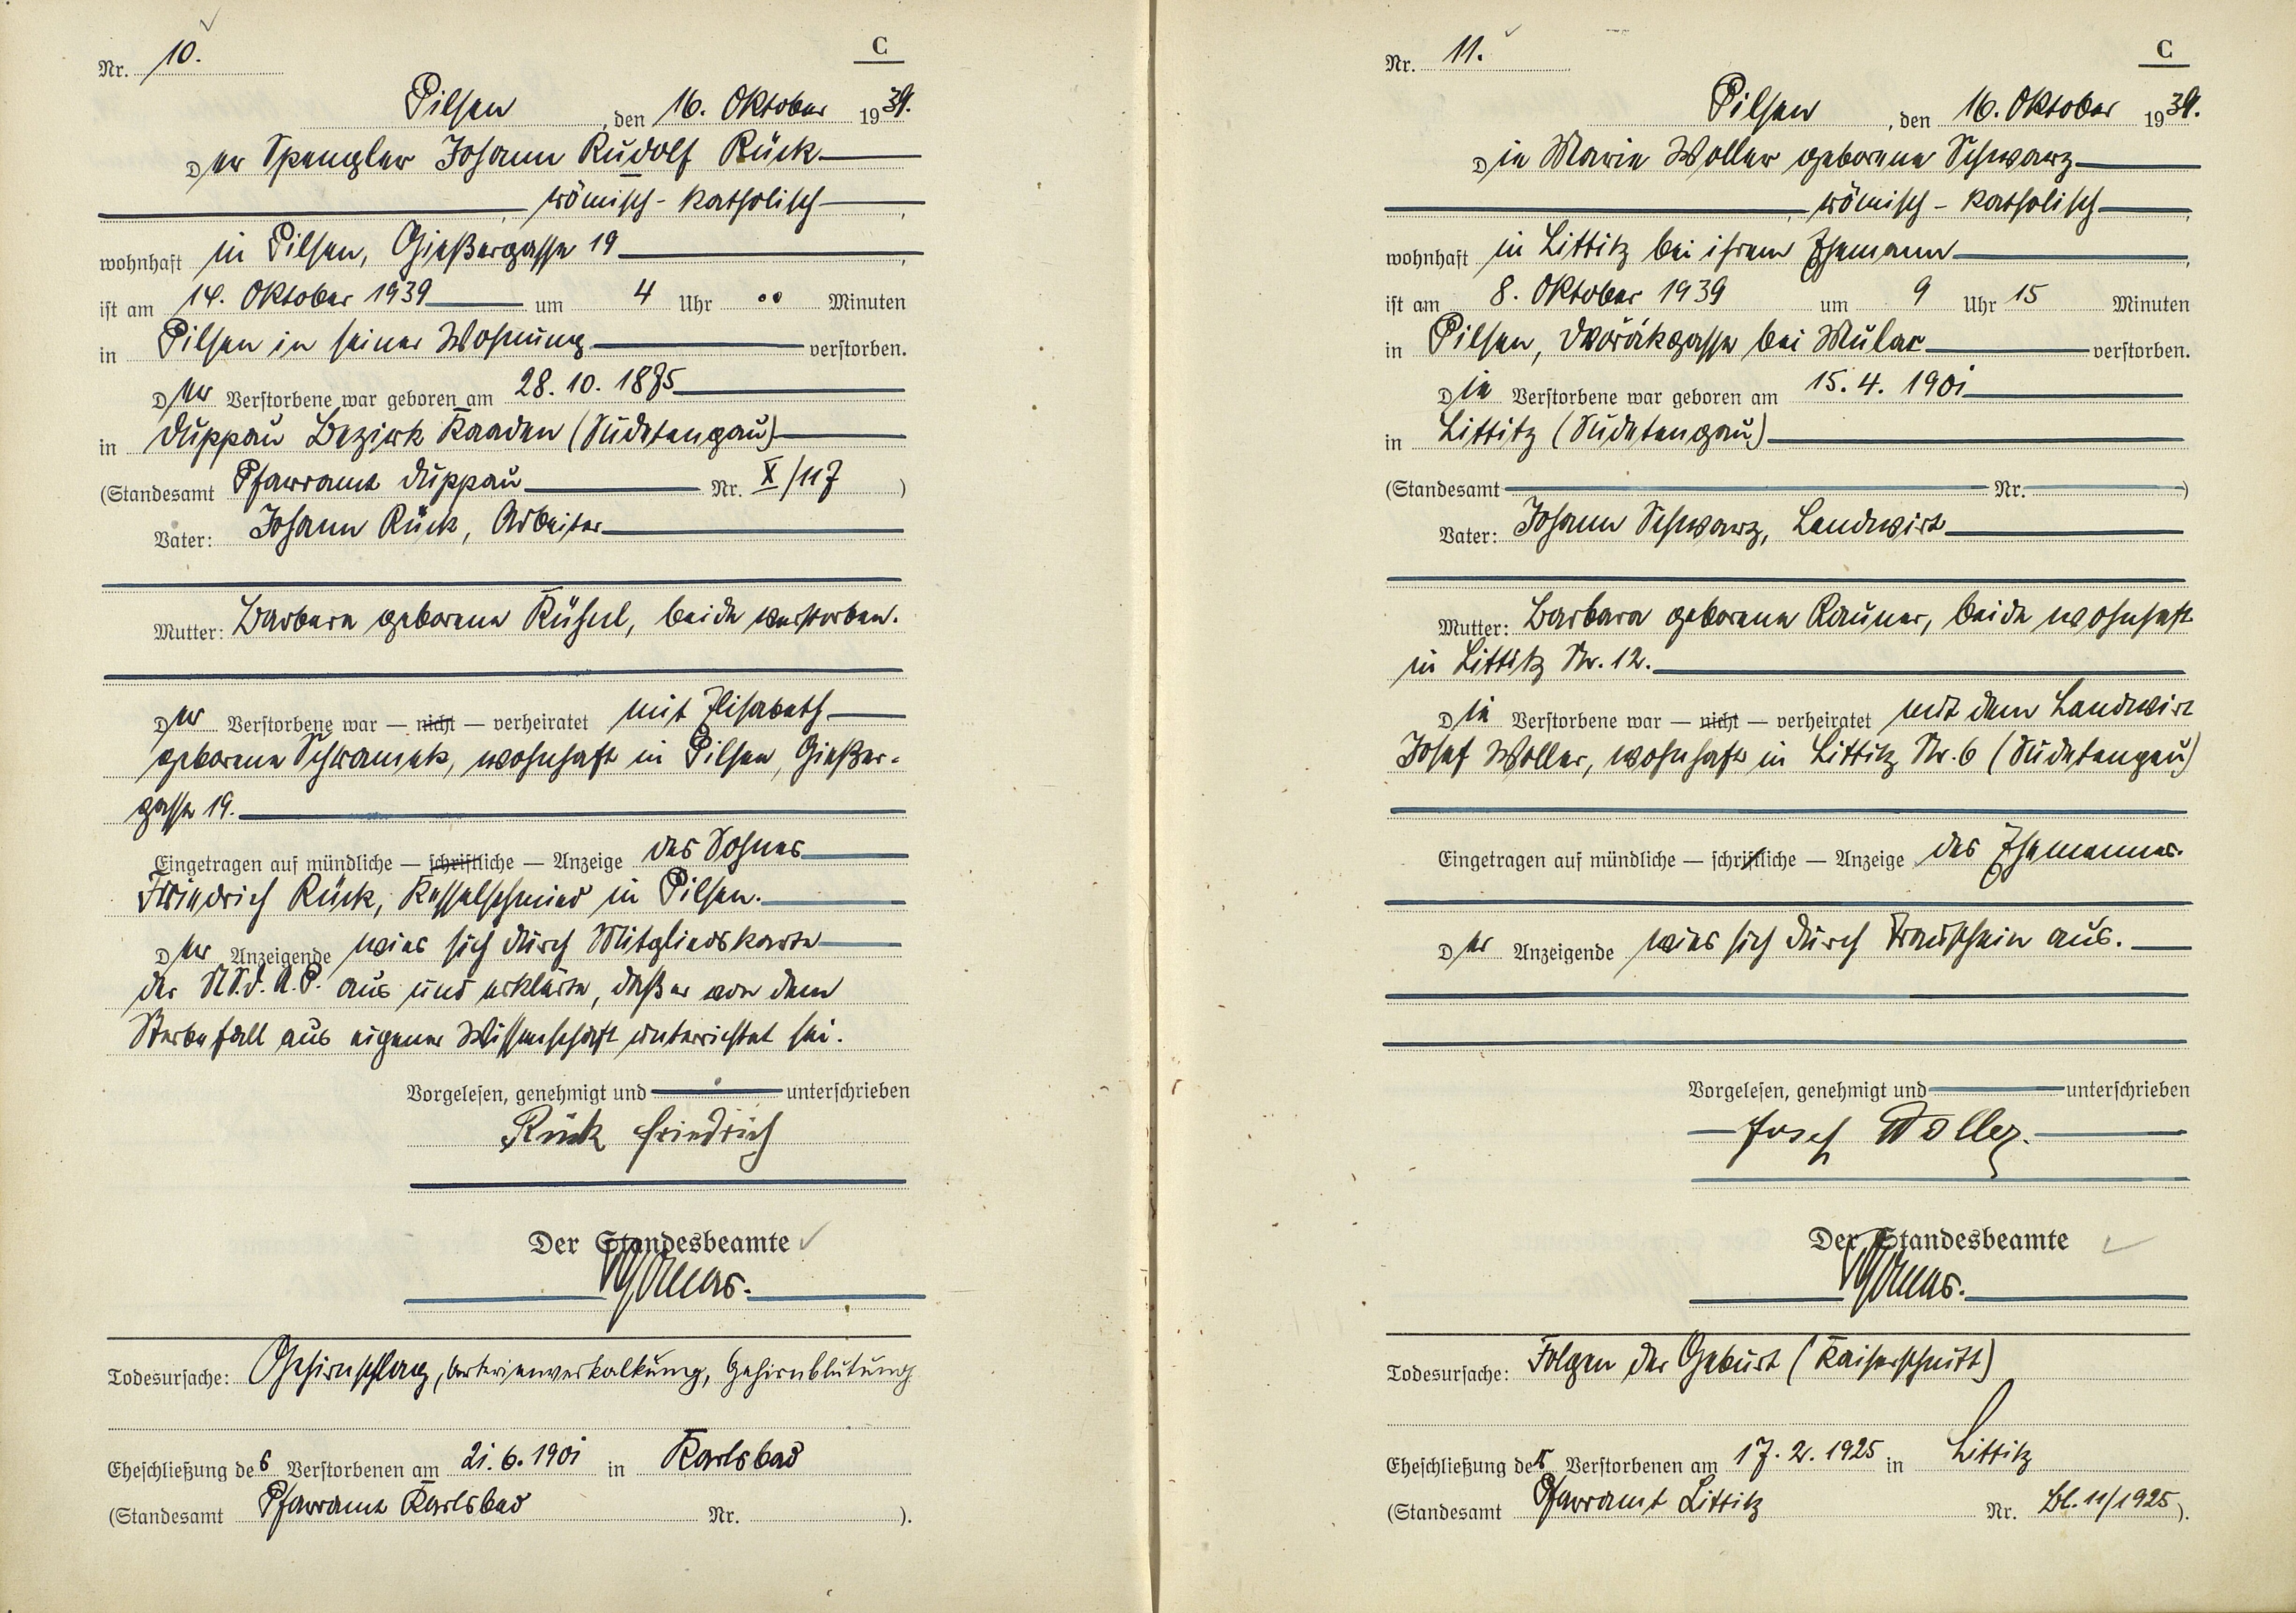 Nr. 10.
C
Pilsen, den 16. Oktober 1939.
Der Spengler Johann Rudolf Rück
, römisch-katholisch,
wohnhaft in Pilsen, Gießergasse 19,
ist am 14. Oktober 1939 um 4 Uhr .. Minuten
in Pilsen in seiner Wohnung verstorben.
Der Verstorbene war geboren am 28.10.1875
in Duppau Bezirk Kaaden (Sudetengau)
(Standesamt Pfarramt Duppau Nr. X/117)
Vater: Johann Rück, Arbeiter
Mutter: Barbara geborene Kühnl, beide verstorben.
Der Verstorbene war — nicht — verheiratet mit Elisabeth
geborene Schramek, wohnhaft in Pilsen, Gießer-
gasse 19.
Eingetragen auf mündliche — schriftliche — Anzeige des Sohnes
Friedrich Rück, Kesselschmied in Pilsen.
Der Anzeigende wies sich durch Mitgliedskarte
der N.S.d.A.P. aus und erklärte, daß er von dem
Sterbefall aus eigener Wissenschaft unterrichtet sei.
Vorgelesen, genehmigt und unterschrieben
Rück Friedrich
Der Standesbeamte
Todesursache: Gehirnschlag, Arterienverkalkung, Gehirnblutung
Eheschließung des Verstorbenen am 21.6.1901 in Karlsbad
(Standesamt Pfarramt Karlsbad Nr. ).
Nr. 11.
C
Pilsen, den 16. Oktober 1939.
Die Marie Woller geborene Schwarz
, römisch-katholisch,
wohnhaft in Littitz bei ihrem Ehemann,
ist am 8. Oktober 1939 um 9 Uhr 15 Minuten
in Pilsen, Dvořákgasse bei Mulač verstorben.
Die Verstorbene war geboren am 15.4.1901
in Littitz (Sudetengau)
(Standesamt Nr. )
Vater: Johann Schwarz, Landwirt
Mutter: Barbara geborene Rauner, beide wohnhaft
in Littitz Nr. 12.
Die Verstorbene war — nicht — verheiratet mit dem Landwirt
Josef Woller, wohnhaft in Littitz Nr. 6 (Sudetengau)
Eingetragen auf mündliche — schriftliche — Anzeige des Ehemannes.
Der Anzeigende wies sich durch Trauschein aus.
Vorgelesen, genehmigt und unterschrieben
Josef Woller.
Der Standesbeamte
Todesursache: Folgen der Geburt (Kaiserschnitt)
Eheschließung der Verstorbenen am 17.2.1925 in Littitz
(Standesamt Pfarramt Littitz Nr. Bl. 11/1925).